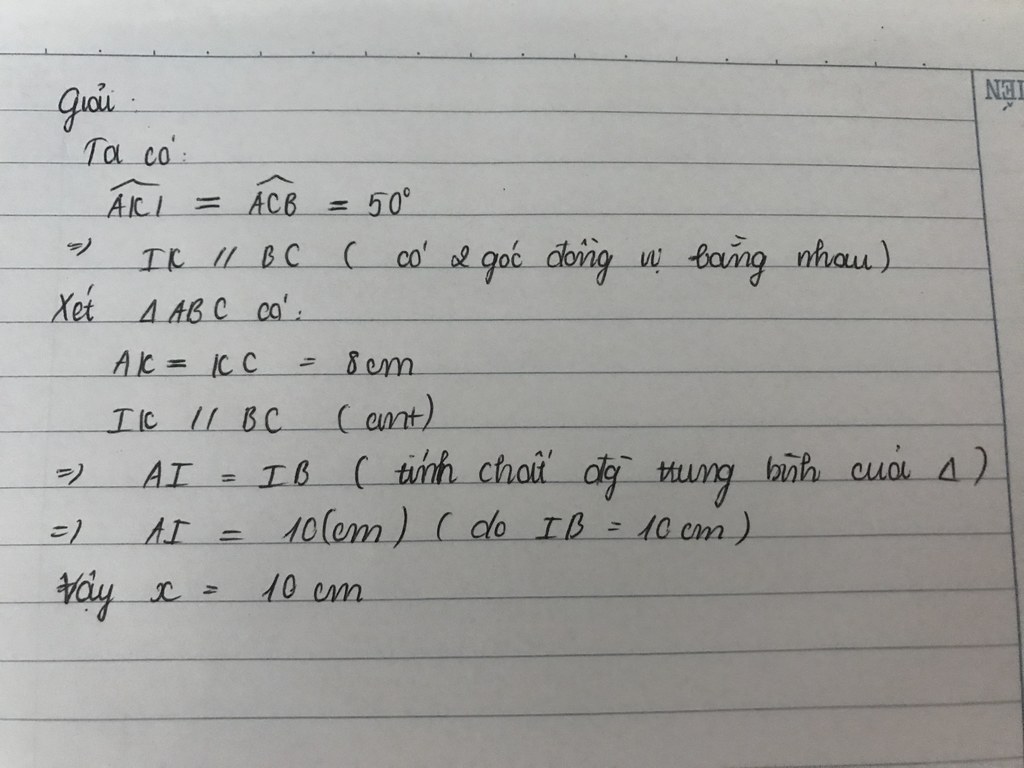 Giải:
Ta có:
\widehat{AKI} = \widehat{ACB} = 50°
=> IK // BC ( có 2 góc đồng vị bằng nhau)
Xét Δ ABC có:
AK = KC = 8cm
IK // BC (cmt)
=> AI = IB ( tính chất đg̀ trung bình của Δ )
=> AI = 10(cm) ( do IB = 10 cm )
Vậy x = 10 cm